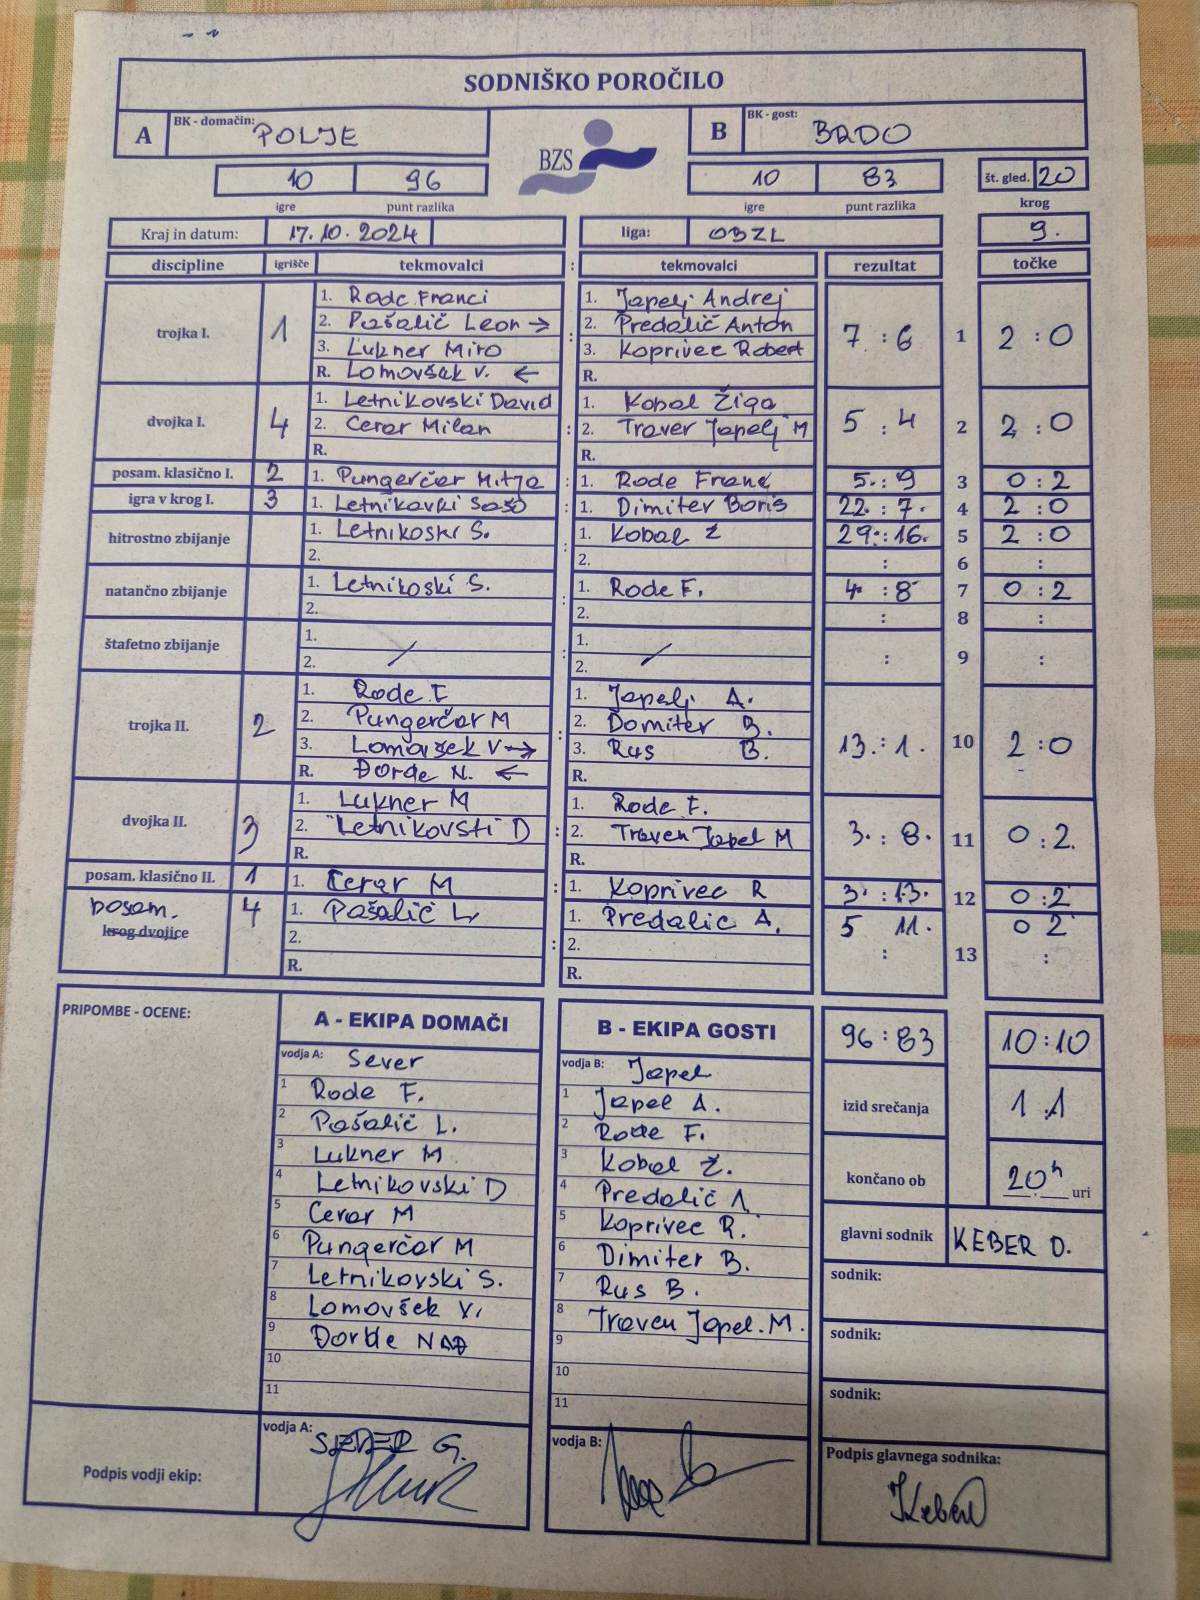 SODNIŠKO POROČILO
A BK - domačin: POLJE BZS B BK - gost: BRDO
10 96 10 83 št. gled. 20
igre punt razlika igre punt razlika krog
Kraj in datum: 17.10.2024 liga: OBZL 9.
discipline igrišče tekmovalci : tekmovalci rezultat točke
trojka I. 1 1. Rode Franci : 1. Japelj Andrej 7 : 6 1 2 : 0
2. Pašalič Leon → 2. Predalič Anton
3. Lukner Miro 3. Koprivec Robert
R. Lomovšek V. ← R.
dvojka I. 4 1. Letnikovski David : 1. Kobal Žiga 5 : 4 2 2 : 0
2. Cerar Milan 2. Traver Japelj M
R. R.
posam. klasično I. 2 1. Pungerčar Mitja : 1. Rode Franc 5. : 9 3 0 : 2
igra v krog I. 3 1. Letnikovki Sašo : 1. Dimiter Boris 22. : 7. 4 2 : 0
hitrostno zbijanje 1. Letnikoski S. : 1. Kobal Ž 29. : 16. 5 2 : 0
2. 2. : 6 :
natančno zbijanje 1. Letnikoski S. : 1. Rode F. 4. : 8 7 0 : 2
2. 2. : 8 :
štafetno zbijanje 1. / : 1. / : 9 :
2. 2.
trojka II. 2 1. Rode F : 1. Japelj A. 13. : 1. 10 2 : 0
2. Pungerčar M 2. Domiter B.
3. Lomovšek V → 3. Rus B.
R. Đorđe N. ← R.
dvojka II. 3 1. Lukner M : 1. Rode F. 3. : 8. 11 0 : 2.
2. Letnikovsti D 2. Traven Japel M
R. R.
posam. klasično II. 1 1. Cerar M : 1. Koprivec R 3. : 13. 12 0 : 2
posam. 4 1. Pašalič L. : 1. Predalic A. 5 11. 0 2
krog dvojice 2. 2. : 13 :
R. R.
PRIPOMBE - OCENE: A - EKIPA DOMAČI B - EKIPA GOSTI 96 : 83 10 : 10
vodja A: Sever vodja B: Japel
1 Rode F. 1 Japel A. izid srečanja 1 : 1
2 Pašalič L. 2 Rode F.
3 Lukner M 3 Kobal Ž.
4 Letnikovski D 4 Predalič A. končano ob 20h uri
5 Cerar M 5 Koprivec R.
6 Pungerčar M 6 Dimiter B. glavni sodnik KEBER D.
7 Letnikovski S. 7 Rus B. sodnik:
8 Lomovšek V. 8 Traven Japel. M.
9 Đorđe NAĐ 9 sodnik:
10 10
11 11 sodnik:
Podpis vodji ekip: vodja A: SEVER G. vodja B: Podpis glavnega sodnika:
Keber